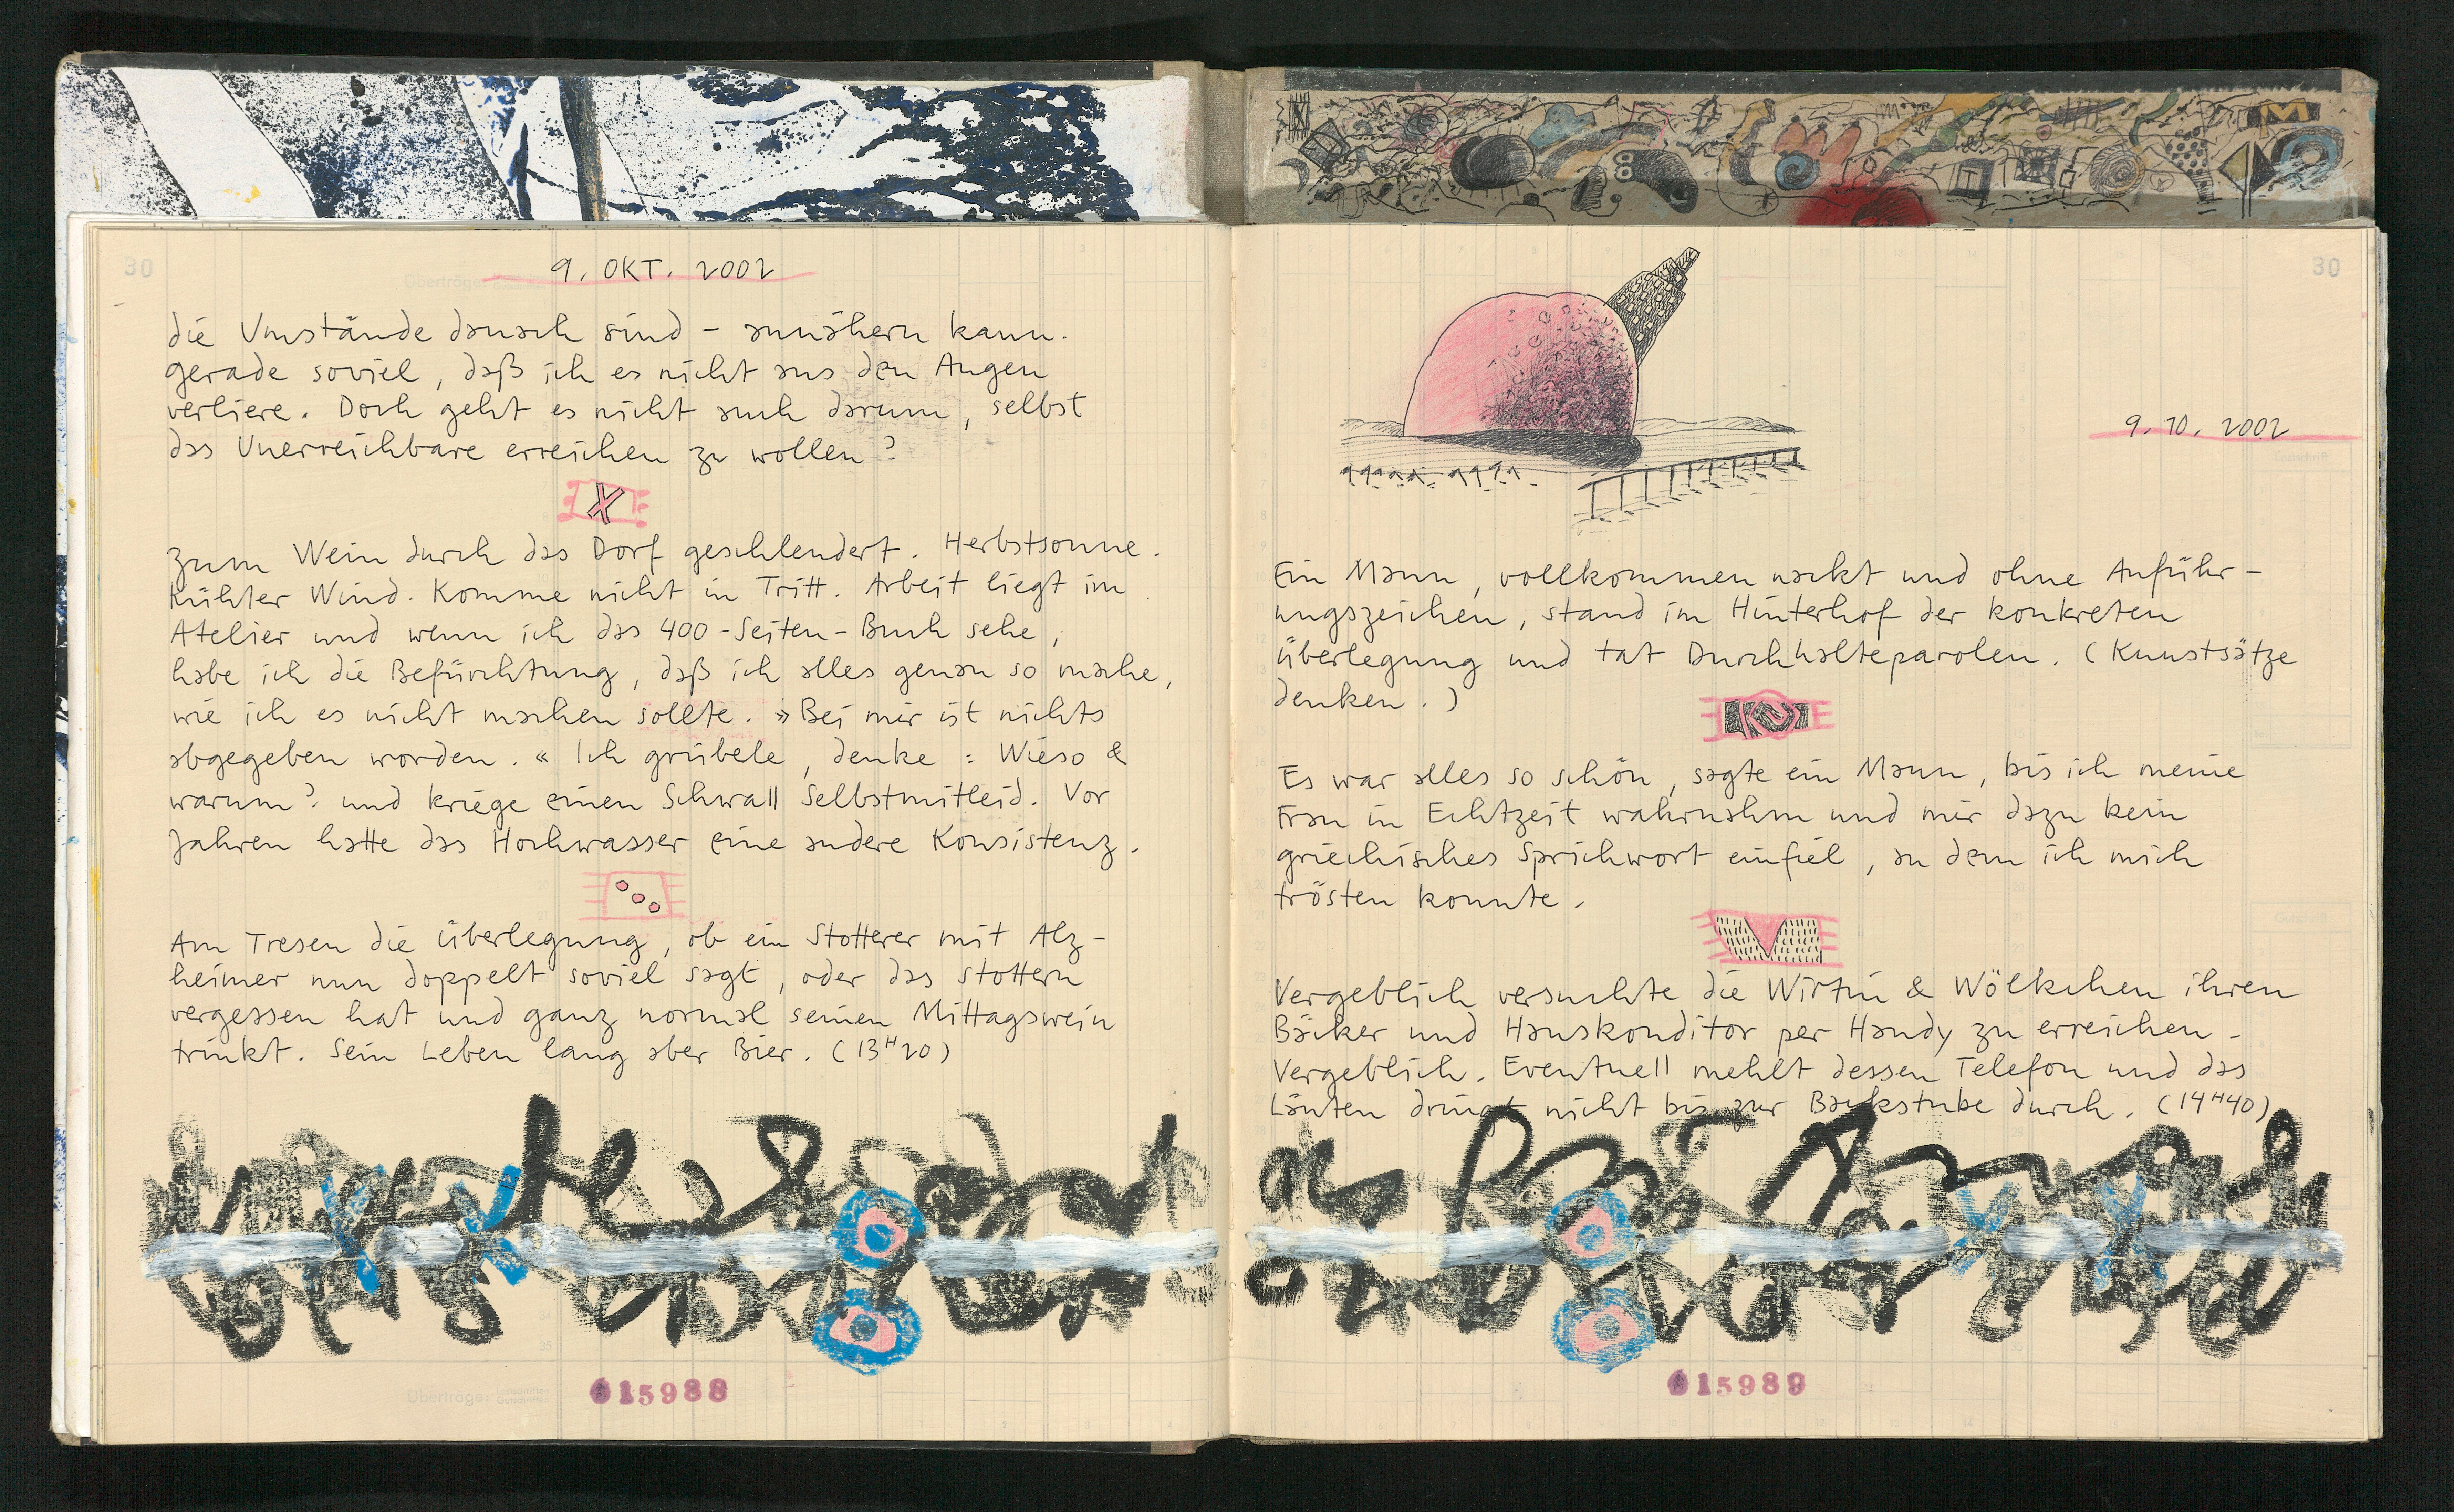 30
Überträge:
9. OKT. 2002
die Umstände danach sind – annähern kann.
gerade soviel, daß ich es nicht aus den Augen
verliere. Doch geht es nicht auch darum, selbst
das Unerreichbare erreichen zu wollen?
X
Zum Wein durch das Dorf geschlendert. Herbstsonne.
Kühler Wind. Komme nicht in Tritt. Arbeit liegt im
Atelier und wenn ich das 400-Seiten-Buch sehe,
habe ich die Befürchtung, daß ich alles genau so mache,
wie ich es nicht machen sollte. »Bei mir ist nichts
abgegeben worden.« Ich grübele, denke: Wieso &
warum? und kriege einen Schwall Selbstmitleid. Vor
Jahren hatte das Hochwasser eine andere Konsistenz.
Am Tresen die Überlegung, ob ein Stotterer mit Alz-
heimer nun doppelt soviel sagt, oder das Stottern
vergessen hat und ganz normal seinen Mittagswein
trinkt. Sein Leben lang aber Bier. (13H20)
Überträge: Lastschriften Gutschriften
015988
M
30
9.10.2002
Lastschrift
Ein Mann, vollkommen nackt und ohne Anführ-
ungszeichen, stand im Hinterhof der konkreten
Überlegung und tat Durchhalteparolen. (Kunstsätze
denken.)
Es war alles so schön, sagte ein Mann, bis ich meine
Frau in Echtzeit wahrnahm und mir dazu kein
griechisches Sprichwort einfiel, an dem ich mich
trösten konnte.
Gutschrift
Vergeblich versuchte die Wirtin & Wölkchen ihren
Bäcker und Hauskonditor per Handy zu erreichen.
Vergeblich. Eventuell mehlt dessen Telefon und das
Läuten dringt nicht bis zur Backstube durch. (14H40)
015989